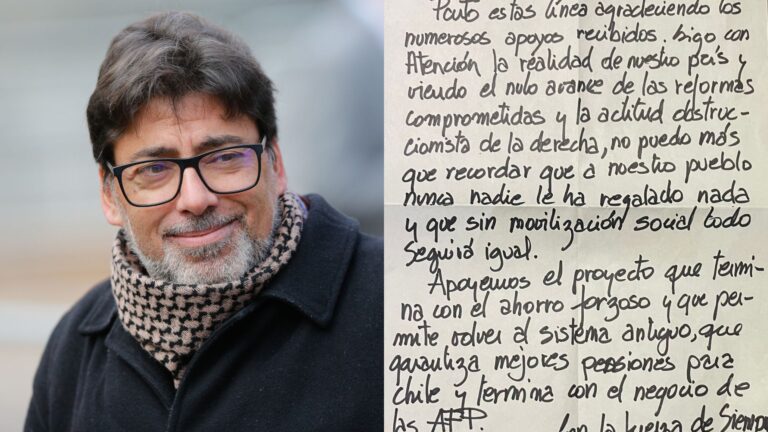 Parto estas línea agradeciendo los
numerosos apoyos recibidos. Sigo con
Atención la realidad de nuestro país y
viendo el nulo avance de las reformas
comprometidas y la actitud obstruc-
cionista de la derecha, no puedo más
que recordar que a nuestro pueblo
nunca nadie le ha regalado nada
y que sin movilización social todo
seguirá igual.
Apoyemos el proyecto que termi-
na con el ahorro forzoso y que per-
mite volver al sistema antiguo, que
garantiza mejores pensiones para
Chile y termina con el negocio de
las AFP.
Con la fuerza de Siempre